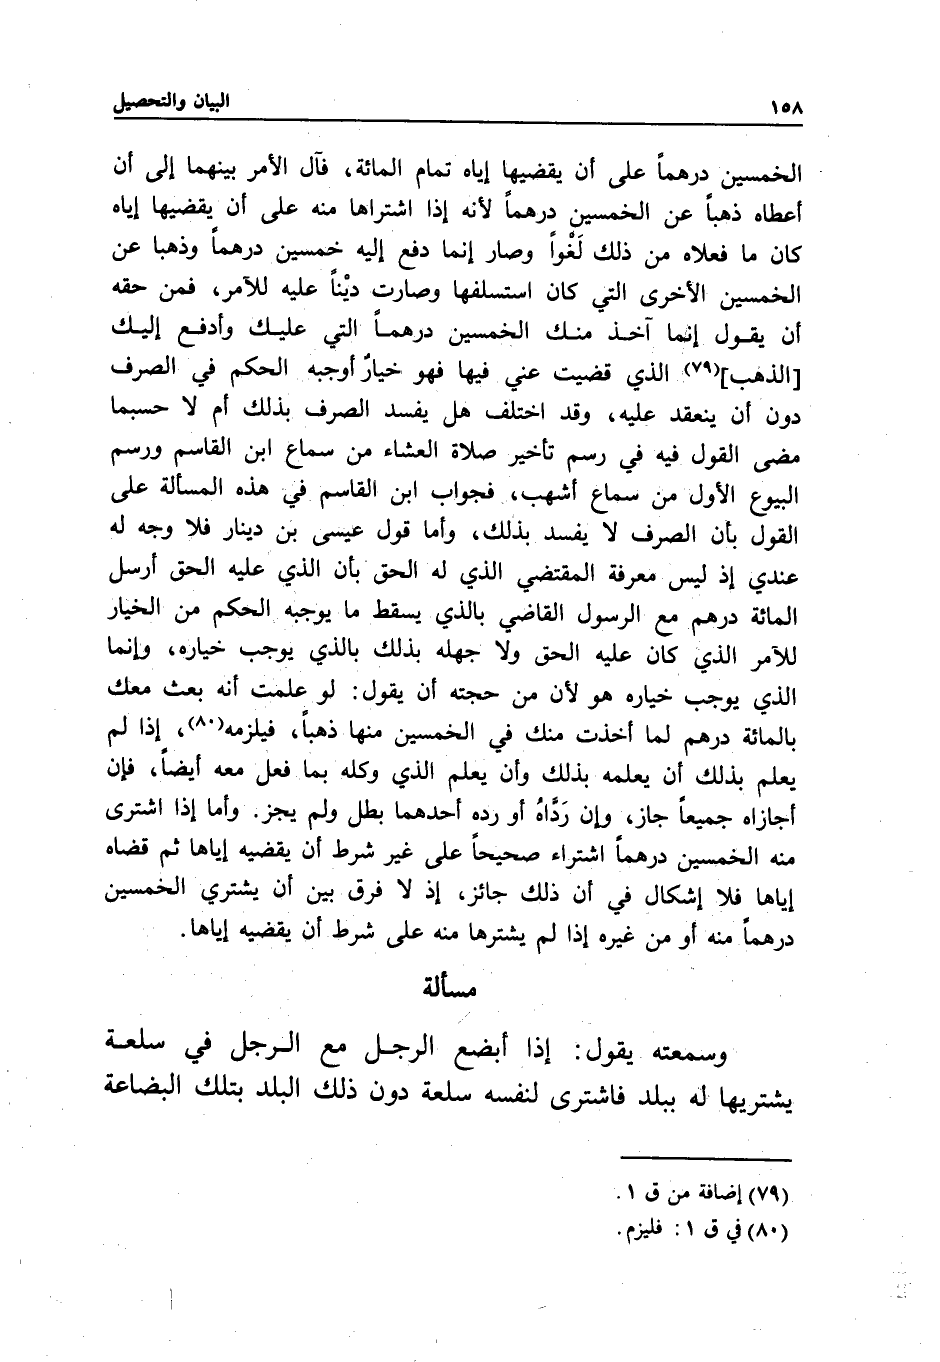 ١٥٨ البيان والتحصيل
الخمسين درهماً على أن يقضيها إياه تمام المائة، فآل الأمر بينهما إلى أن
أعطاه ذهباً عن الخمسين درهماً لأنه إذا اشتراها منه على أن يقضيها إياه
كان ما فعلاه من ذلك لَغْواً وصار إنما دفع إليه خمسين درهماً وذهبا عن
الخمسين الأخرى التي كان استسلفها وصارت ديْناً عليه للآمر، فمن حقه
أن يقول إنما آخذ منك الخمسين درهماً التي عليك وأدفع إليك
[الذهب](٧٩) الذي قضيت عني فيها فهو خيارٌ أوجبه الحكم في الصرف
دون أن ينعقد عليه، وقد اختلف هل يفسد الصرف بذلك أم لا حسبما
مضى القول فيه في رسم تأخير صلاة العشاء من سماع ابن القاسم ورسم
البيوع الأول من سماع أشهب، فجواب ابن القاسم في هذه المسألة على
القول بأن الصرف لا يفسد بذلك، وأما قول عيسى بن دينار فلا وجه له
عندي إذ ليس معرفة المقتضي الذي له الحق بأن الذي عليه الحق أرسل
المائة درهم مع الرسول القاضي بالذي يسقط ما يوجبه الحكم من الخيار
للآمر الذي كان عليه الحق ولا جهله بذلك بالذي يوجب خياره، وإنما
الذي يوجب خياره هو لأن من حجته أن يقول: لو علمت أنه بعث معك
بالمائة درهم لما أخذت منك في الخمسين منها ذهباً، فيلزمه(٨٠)، إذا لم
يعلم بذلك أن يعلمه بذلك وأن يعلم الذي وكله بما فعل معه أيضاً، فإن
أجازاه جميعاً جاز، وإن رَدَّاهُ أو رده أحدهما بطل ولم يجز. وأما إذا اشترى
منه الخمسين درهماً اشتراء صحيحاً على غير شرط أن يقضيه إياها ثم قضاه
إياها فلا إشكال في أن ذلك جائز، إذ لا فرق بين أن يشتري الخمسين
درهماً منه أو من غيره إذا لم يشترها منه على شرط أن يقضيه إياها.
مسألة
وسمعته يقول: إذا أبضع الرجل مع الرجل في سلعة
يشتريها له ببلد فاشترى لنفسه سلعة دون ذلك البلد بتلك البضاعة
(٧٩) إضافة من ق ١.
(٨٠) في ق ١: فليزم.